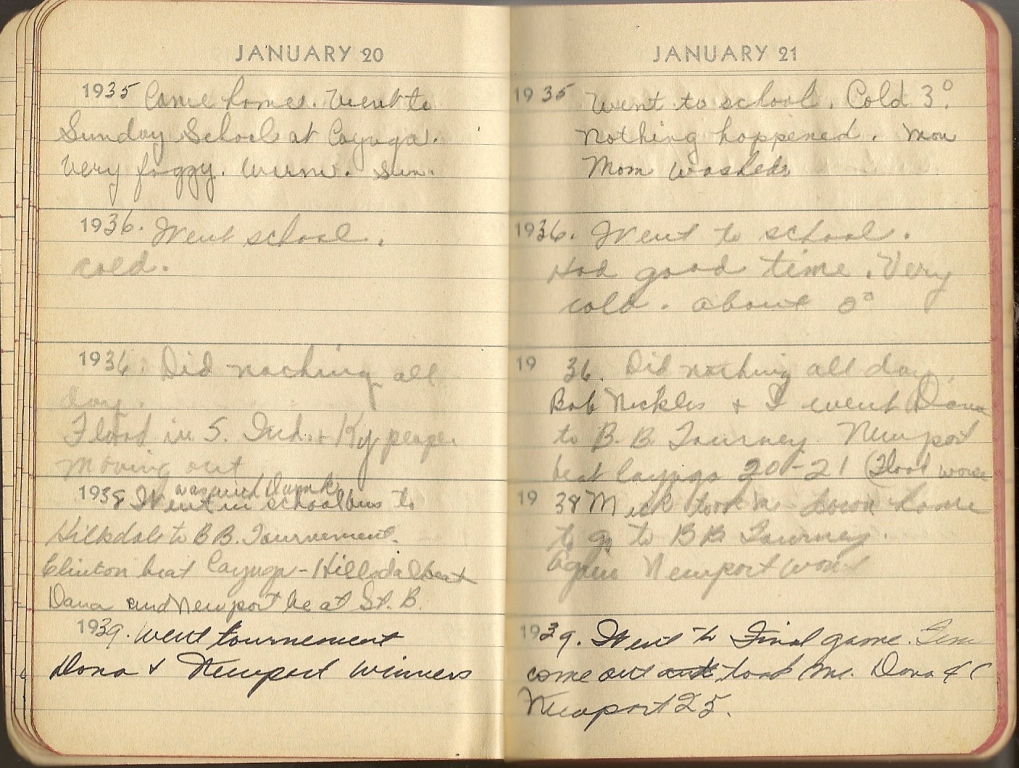 JANUARY 20
1935 Came home. Went to
Sunday School at Cayuga.
Very foggy. Warm. Sun.
1936. Went school.
cold.
1936. Did nothing all
day.
Flood in S. Ind. + Ky
moving out
was with
1938 Went in school bus to
Hillsdale to B.B. Tournement.
Clinton beat Cayuga - Hillsdale beat
Dana and Newport beat St. B.
1939. Went tournement
Dana & Newport winners
JANUARY 21
1935 Went to school. Cold 3°
Nothing happened. Mon
Mom washed
1936. Went to school.
Had good time. Very
cold. about 0°
1936. Did nothing all day.
Bob Nickles + I went Dana
to B.B. Tourney Newport
beat Cayuga 20-21 (Flood worse
1938 Mick took me down home
to go to BB Tourney.
Again Newport won
1939. Went to Final game.
come out and took me. Dana
Newport 25.